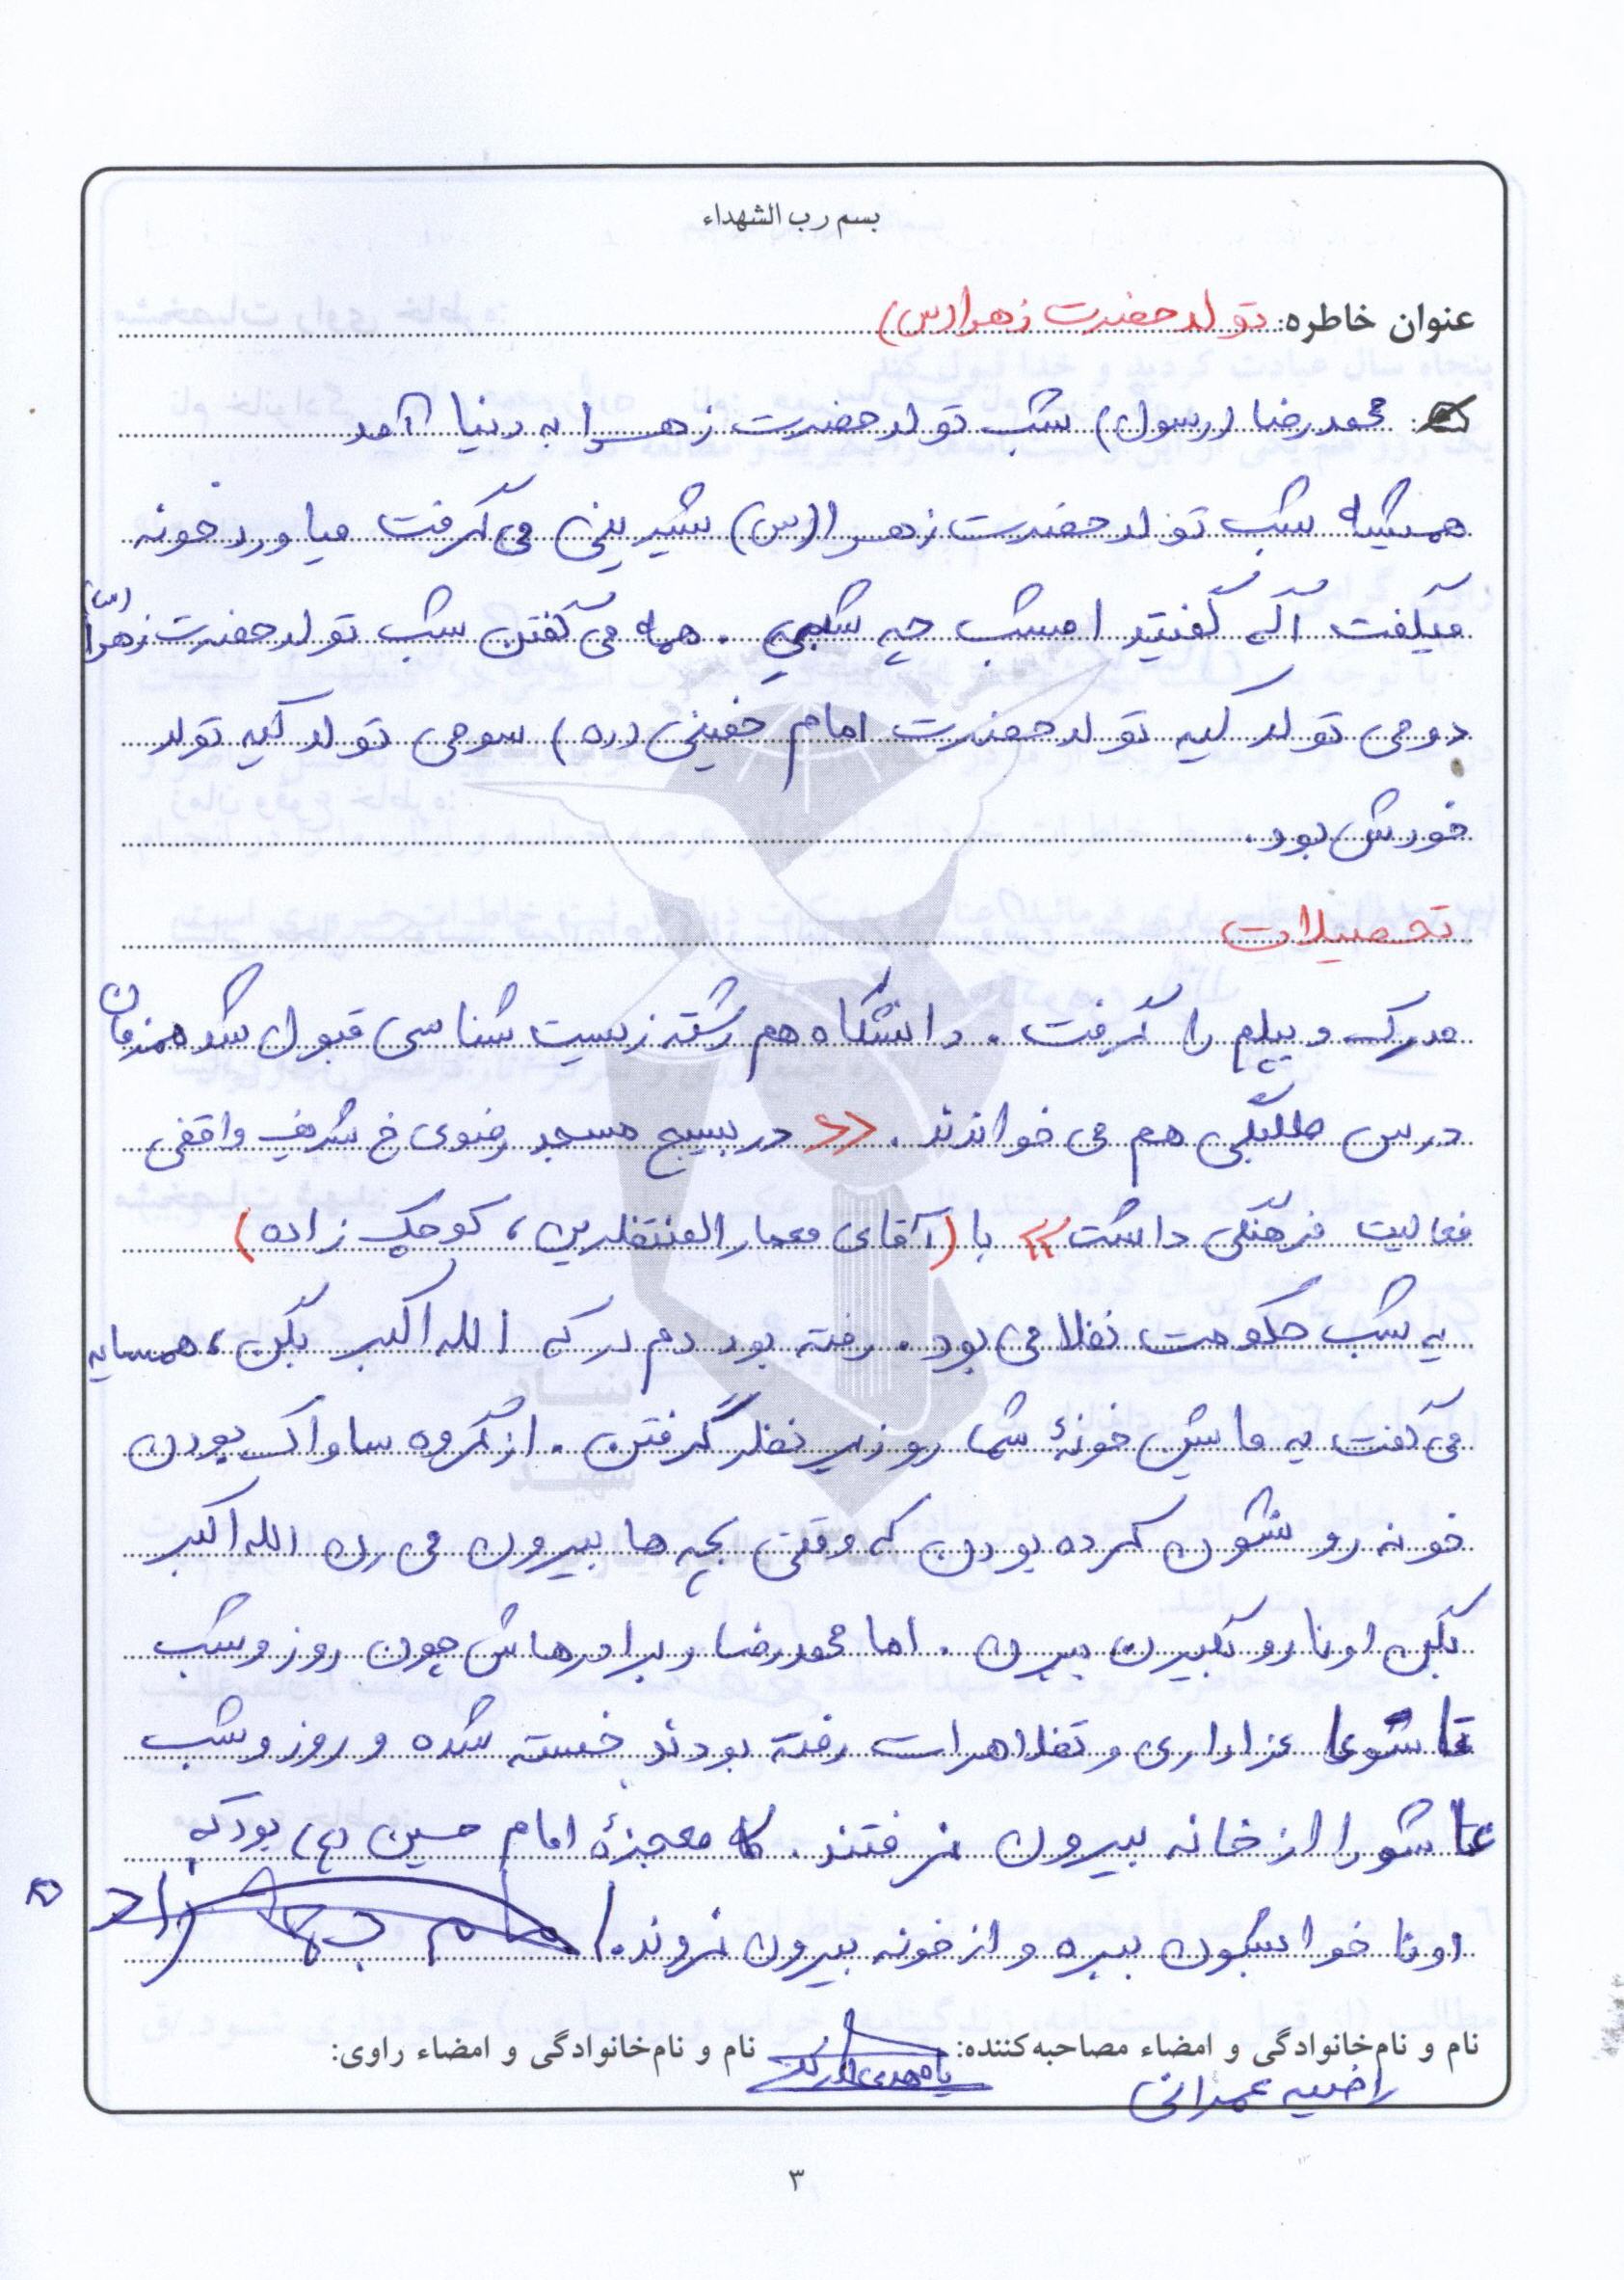 بسم رب الشهداء
عنوان خاطره: تولد حضرت زهرا (س)
محمدرضا (رسول) شب تولد حضرت زهرا به دنیا آمد
همیشه شب تولد حضرت زهرا (س) شیرینی می گرفت میاورد خونه
میگفت اگه گفتید امشب چه شبیه . همه می گفتن شب تولد حضرت زهرا (س)
دومی تولد کیه تولد حضرت امام خمینی (ره) سومی تولد کیه تولد
خودش بود.
تحصیلات
مدرک دیپلم را گرفت . دانشگاه هم رشته زیست شناسی قبول شد همزمان
درس طلبگی هم می خواندند . << در بسیج مسجد رضوی خ شریف واقفی
فعالیت فرهنگی داشت >> با (آقای معمار المنتظرین ، کوچک زاده)
یه شب حکومت نظامی بود . رفته بود دم در که الله اکبر بگن ، همسایه
می گفت یه ماشین خونۀ شما رو زیر نظر گرفتن . از گروه ساواک بودن
خونه رو نشون کرده بودن که وقتی بچه ها بیرون می رن الله اکبر
بگن اونا رو بگیرن ببرن . اما محمدرضا و برادرهاش چون روز و شب
تاسوعا عزاداری و تظاهرات رفته بودند خسته شده و روز و شب
عاشورا از خانه بیرون نرفتند . معجزۀ امام حسین (ع) بود که
اونا خوابشون ببره و از خونه بیرون نروند .
نام و نام‌خانوادگی و امضاء مصاحبه‌کننده: نام و نام‌خانوادگی و امضاء راوی:
راضیه عمرانی
۳